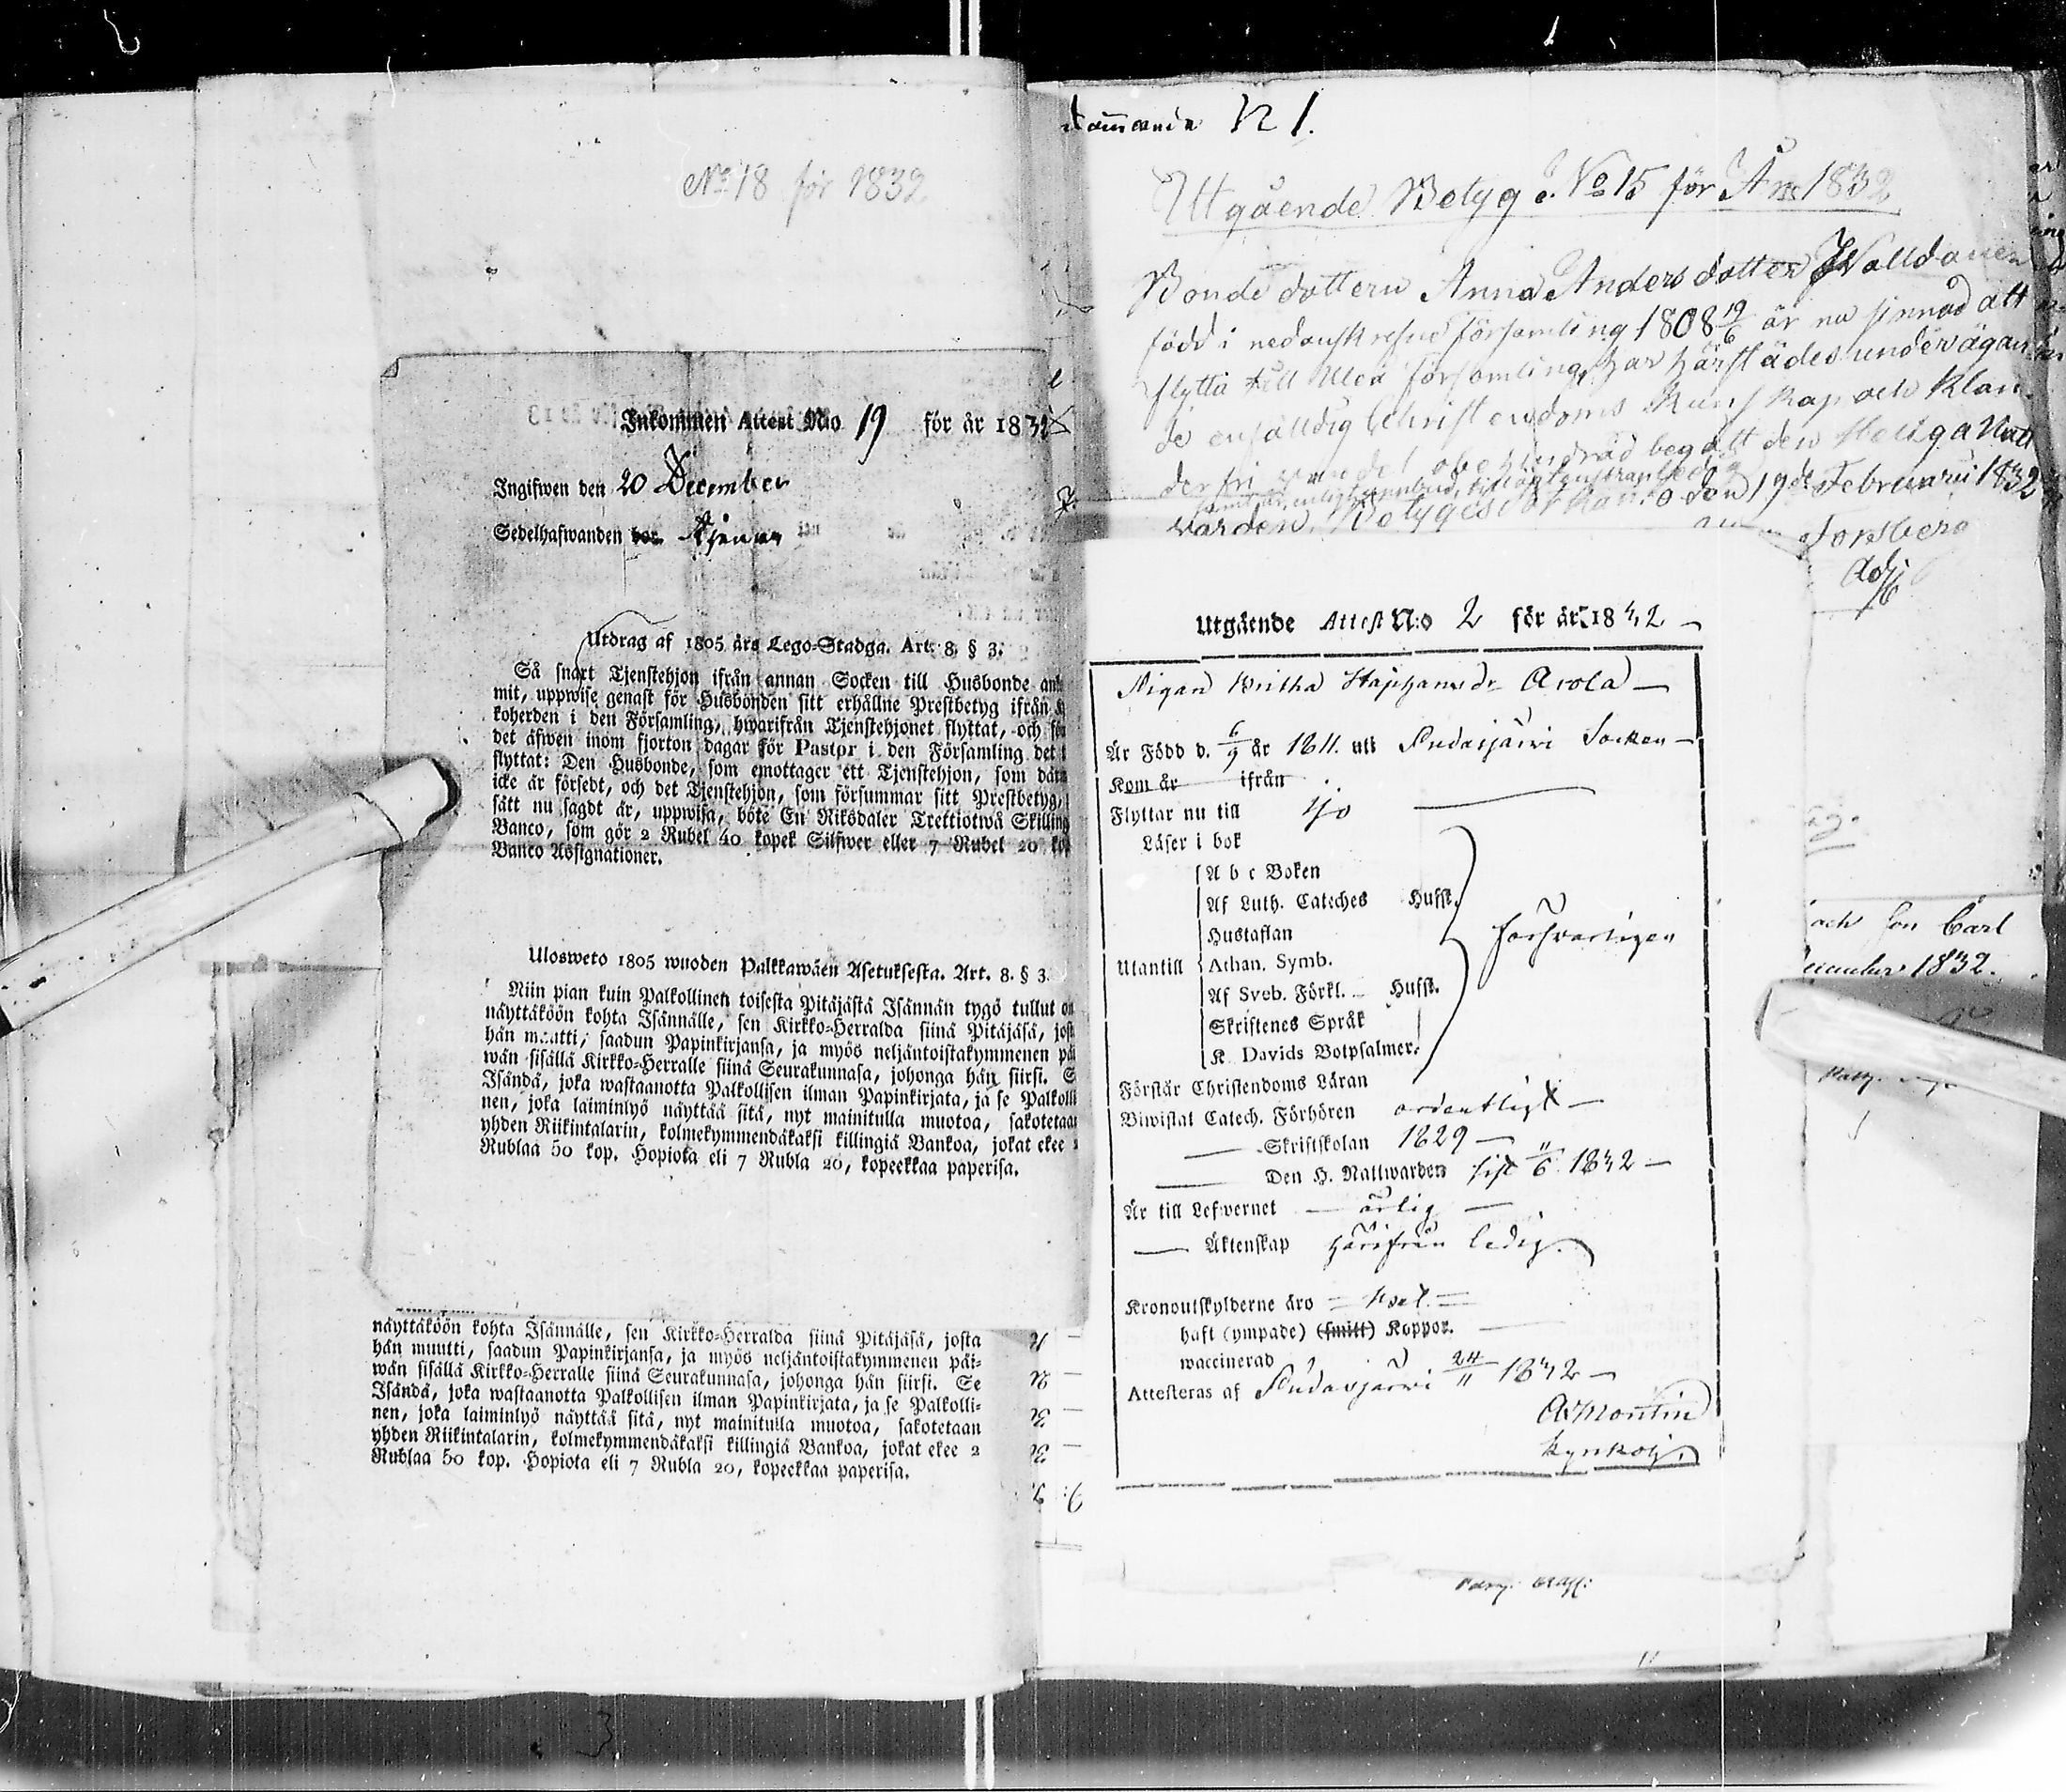 No 18 för 1832
Inkommen Attest No 19 för år 1832
Ingifwen den 20 December
Sedelhafwanden bor tjenar
Utdrag af 1805 års Lego-Stadga. Art. 8. § 3.
Så snart Tjenstehjon ifrån annan Socken till Husbonde
mit, uppwise genast för Husbonden sitt erhållne Prestbetyg ifrån
koherden i den Församling, hwarifrån Tjenstehjonet flyttat, och
det äfwen inom fjorton dagar för Pastor i den Församling det
flyttat: Den Husbonde, som emottager ett Tjenstehjon, som
icke är försedt, och det Tjenstehjon, som försummar sitt Prestbetyg,
sätt nu sagdt är, uppwisa, böte En Riksdaler Trettiotwå Skilling
Banco, som gör 2 Rubel 40 kopek Silfwer eller 7 Rubel 20
Banco Assignationer.
Ulosweto 1805 wuoden Palkkawäen Asetuksesta. Art. 8. § 3.
Niin pian kuin Palkollinen toisesta Pitäjästä Isännän tygö tullut
näyttäköön kohta Isännälle, sen Kirkko-Herralda siinä Pitäjäsä,
hän muutti, saadun Papinkirjansa, ja myös neljäntoistakymmenen
wän sisällä Kirkko-Herralle siinä Seurakunnasa, johonga hän siirsi.
Isändä, joka wastaanotta Palkollisen ilman Papinkirjata, ja se
nen, joka laiminlyö näyttää sitä, nyt mainitulla muotoa, sakotetaan
yhden Riikintalarin, kolmekymmendäkaksi killingiä Bankoa, jokat ekee
Rublaa 50 kop. Hopiota eli 7 Rubla 20, kopeekkaa paperisa.
näyttäköön kohta Isännälle, sen Kirkko-Herralda siinä Pitäjäsä, josta
hän muutti, saadun Papinkirjansa, ja myös neljäntoistakymmenen päi-
wän sisällä Kirkko-Herralle siinä Seurakunnasa, johonga hän siirsi. Se
Isändä, joka wastaanotta Palkollisen ilman Papinkirjata, ja se Palkolli-
nen, joka laiminlyö näyttää sitä, nyt mainitulla muotoa, sakotetaan
yhden Riikintalarin, kolmekymmendäkaksi killingiä Bankoa, jokat ekee 2
Rublaa 50 kop. Hopiota eli 7 Rubla 20, kopeekkaa paperisa.
N 1.
Utgående Betyg No 15 för År 1832
Bonde dottern Anna Anders dotter
född i nedanskrefne församling 1808 19/6 är nu sinnad att
flytta till Uleå församling, har härstädes undervägan
de enfälldig Christendoms kunskap och klan
der fri vandel obehindrad begått den Heliga Natt
varden. Betyges den 19de Februarii 1832
Forsberg
Adj
Utgående Attest N:o 2 för år 1832
Pigan Britha Staphansdr Arola
Är Född d. 6/9 år 1811. uti Pudasjärwi Socken
Kom år ifrån
Flyttar nu till Ijo
Läser i bok
A b c Boken
Af Luth. Cateches Hufst.
Hustaflan
Utantill Athan. Symb.
försvarligen
Af Sveb. Förkl. Hufst.
Skriftenes Språk
K. Davids Botpsalmer.
Förstår Christendoms Läran
Biwistat Catech. Förhören ordentligt
Skriftskolan 1829
Den H. Nattwarden sist 11/6 1832
Är till Lefwernet ärlig
Äktenskap härifrån ledig.
Kronoutskylderne äro
haft (ympade) (smitt) Koppor.
waccinerad
Attesteras af Pudasjärwi 24/11 1832
A Montin
Kyrkohj.
och son Carl
1832.